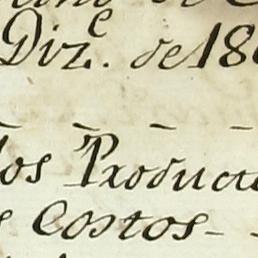 Dizᵉ. de 18
los Product
s Costos - -